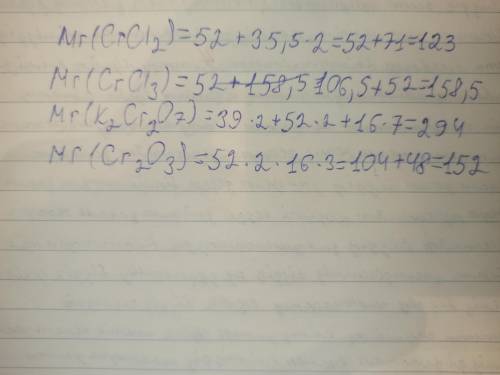 Mr(CrCl2)=52+35,5·2=52+71=123
Mr(CrCl3)=52+158,5 106,5+52=158,5
Mr(K2Cr2O7)=39·2+52·2+16·7=294
Mr(Cr2O3)=52·2·16·3=104+48=152